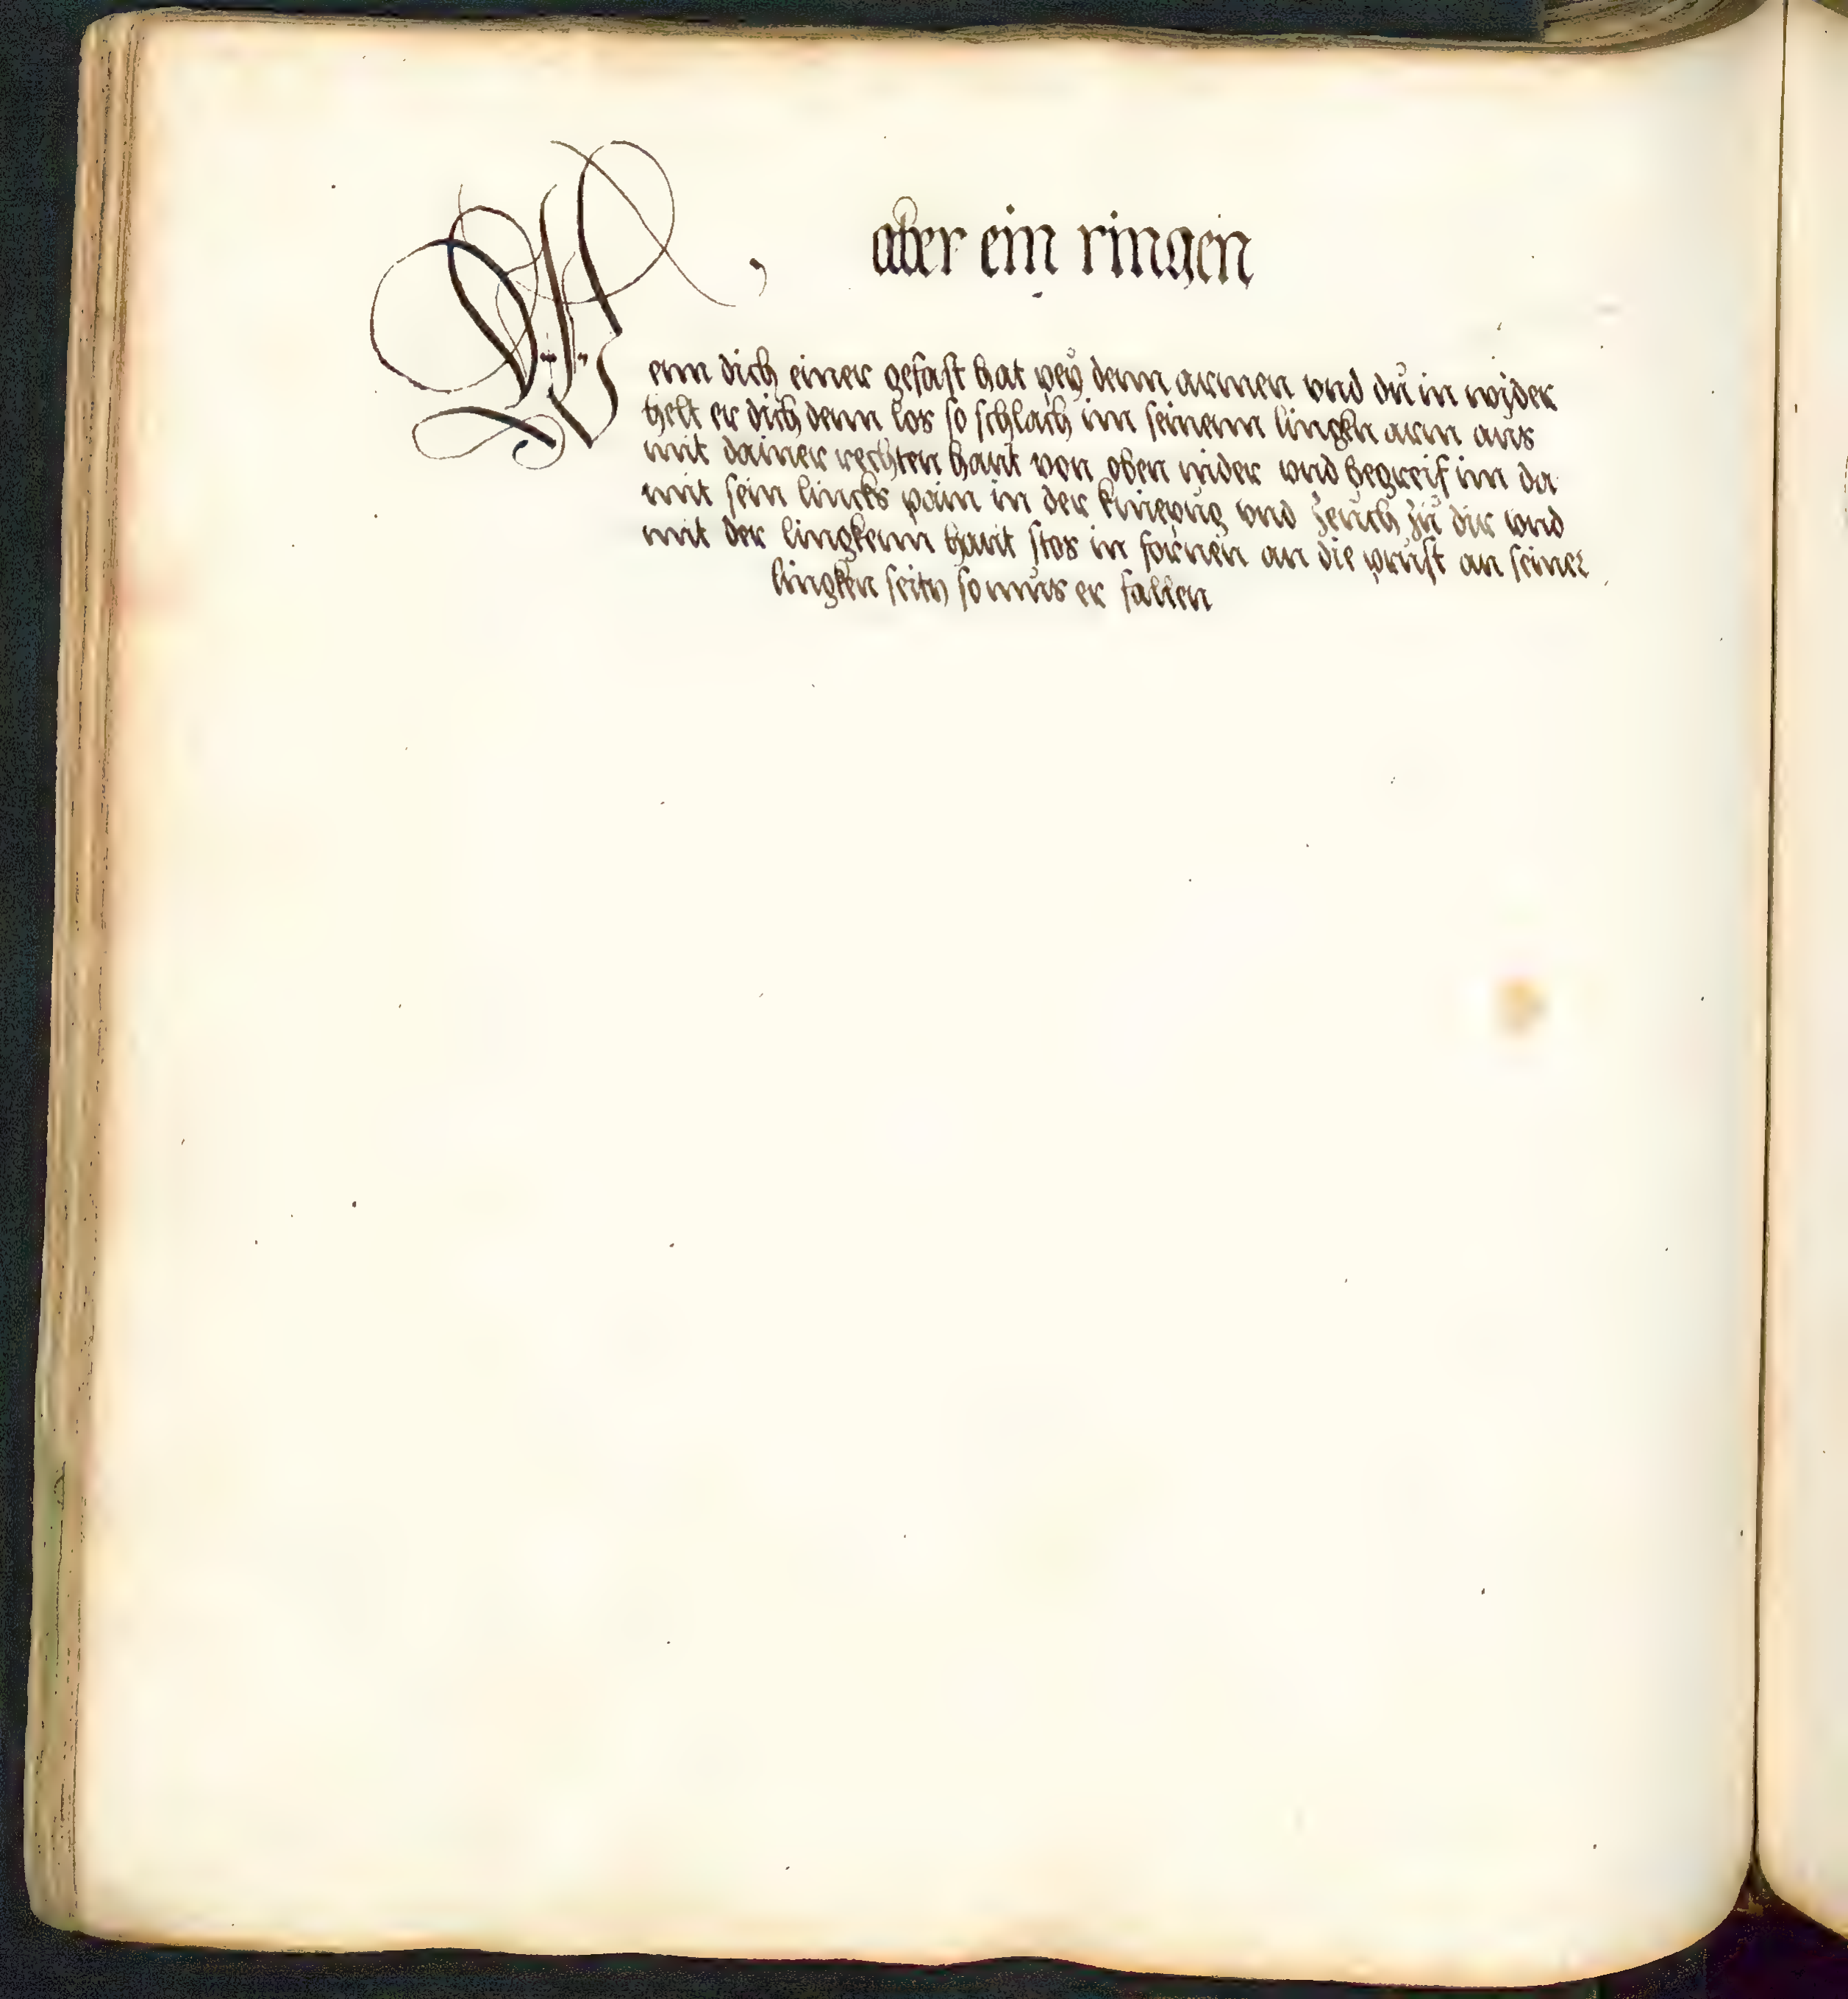 aber ein ringen
Wenn dich einer gefast hat peÿ denn armen vnd dů in wider
helt er dich denn los so schlach im seinenn lingken arm aůs
mit dainer rechten hant von oben nider vnd begreif im da
mit sein lincks pain in der kniepůg vnd zeuch zů dir vnd
mit der lingkenn hant stos in fornen an die prust an seiner
lingken seitn so můs er fallen